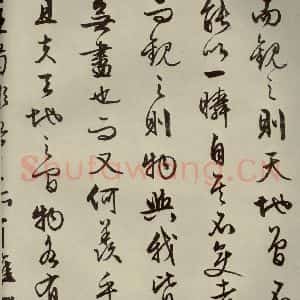 而觀之則天地曾不
能以一瞬自其不變者
而觀之則物與我皆
無盡也而又何羨乎
且夫天地之間物各有
Shufawang.CN